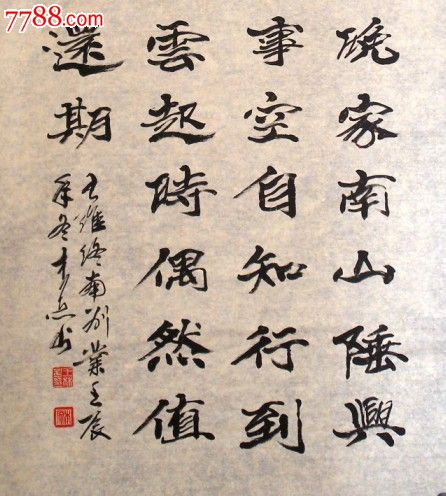 7788.com
中国收藏热线
晚家南山陲興
事空自知行到
雲起時偶然值
還期
王維終南別業壬辰
年冬